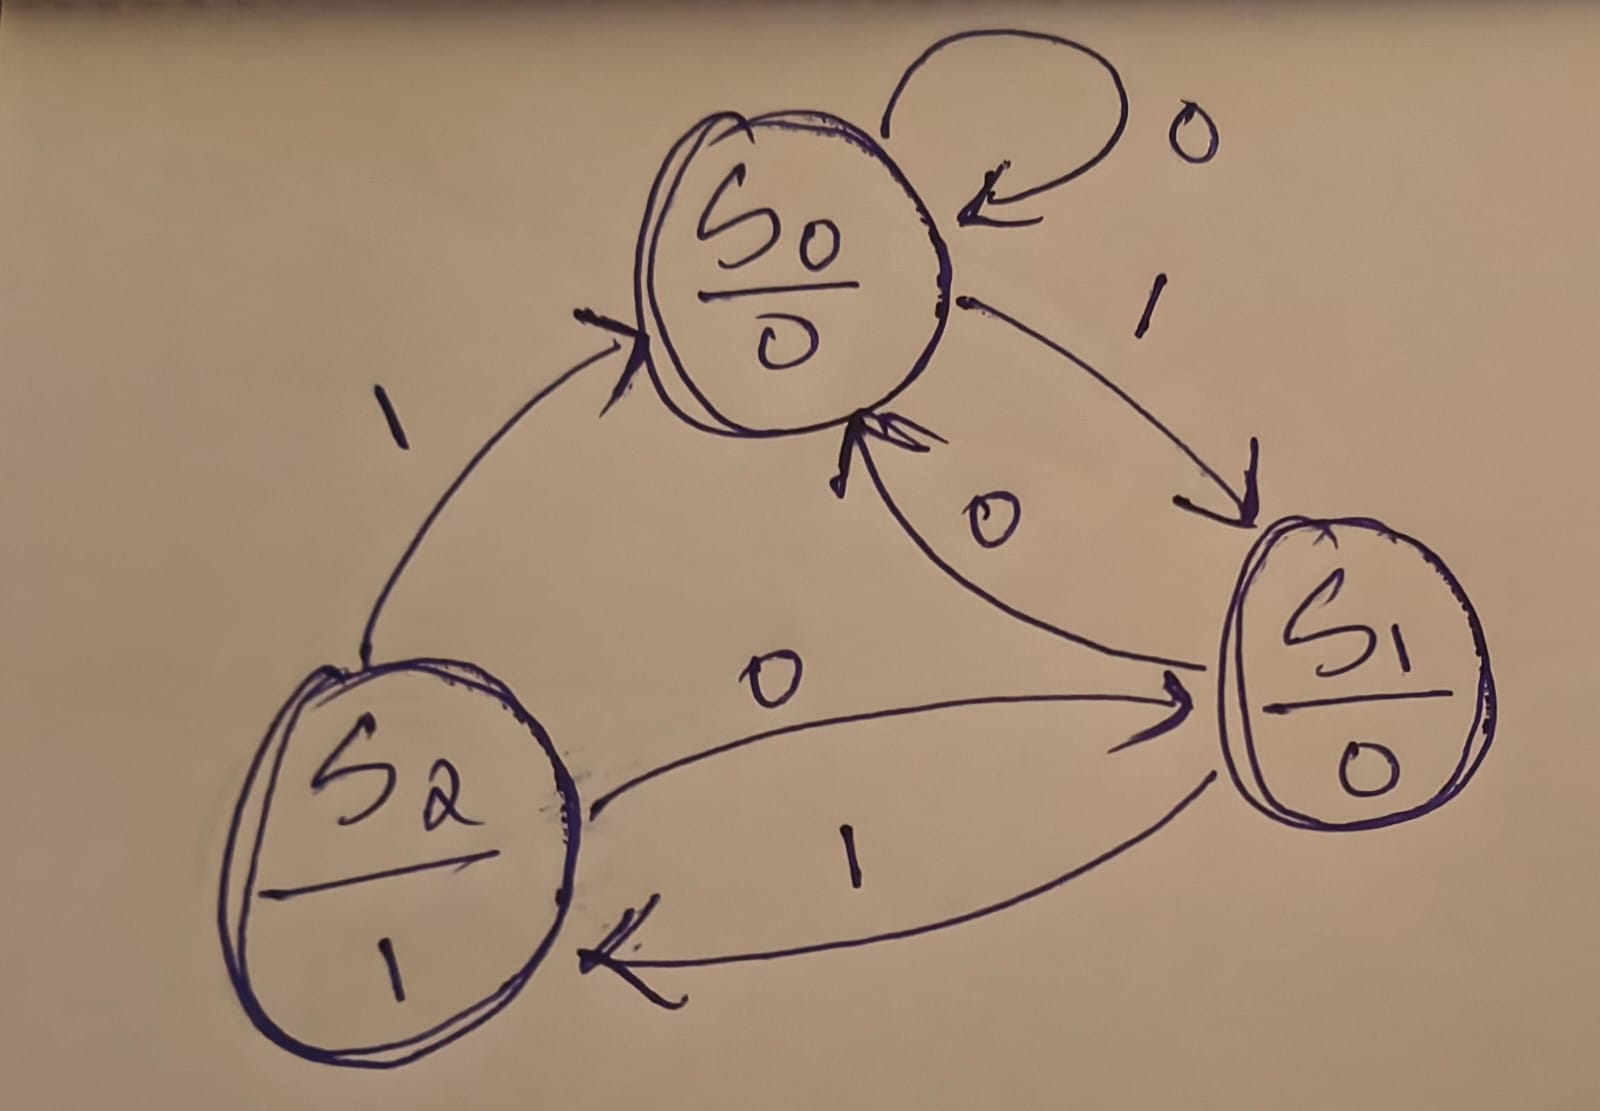 0
S0
0
1
1
0
S1
0
0
S2
1
1